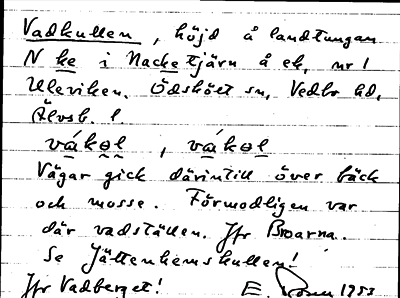 Vadkullen, höjd å landtungan
N ke i Nacketjärn å ek. nr 1
Uleviken. Ödskölt sn, Vedbo hd,
Älvsb. l
vákəl, vákəl
Vägar gick därintill över bäck
och mosse. Förmodligen var
där vadställen. Jfr Broarna.
Se Jättenhemskullen!
Jfr Vadberget! E. 1953